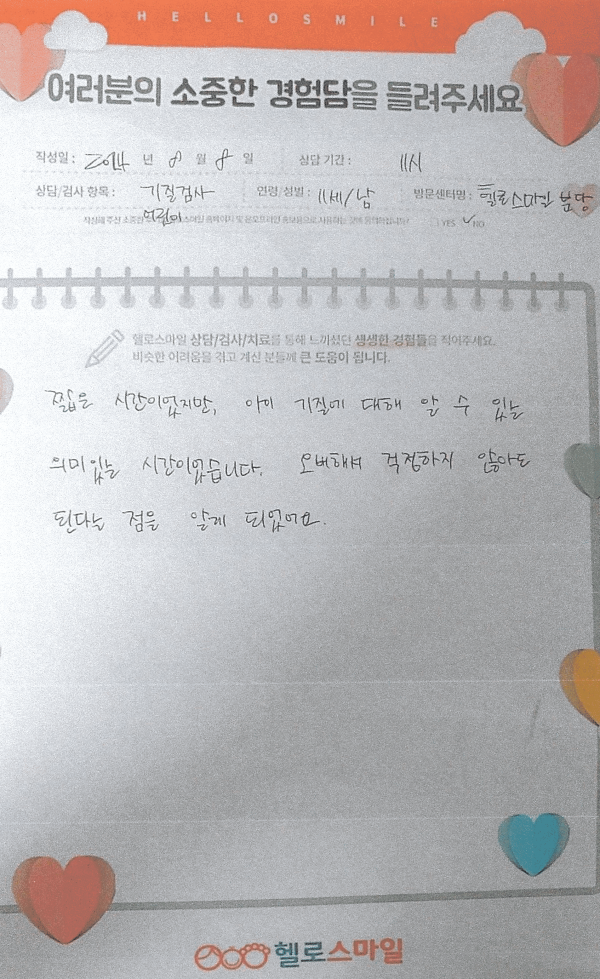 HELLOSMILE
여러분의 소중한 경험담을 들려주세요
작성일 : 2024 년 8 월 8 일 상담 기간 : 11시
상담/검사 항목 : 기질검사 연령/성별 : 11세/남 방문센터명 : 헬로스마일 분당
작성해 주신 소중한 스마일 홈페이지 및 온오프라인 홍보용으로 사용하는 것에 동의하십니까? YES ✓ NO
헬로스마일 상담/검사/치료를 통해 느끼셨던 생생한 경험들을 적어주세요.
비슷한 어려움을 겪고 계신 분들께 큰 도움이 됩니다.
짧은 시간이었지만, 아이 기질에 대해 알 수 있는
의미있는 시간이었습니다. 오버해서 걱정하지 않아도
된다는 점을 알게 되었어요.
헬로스마일